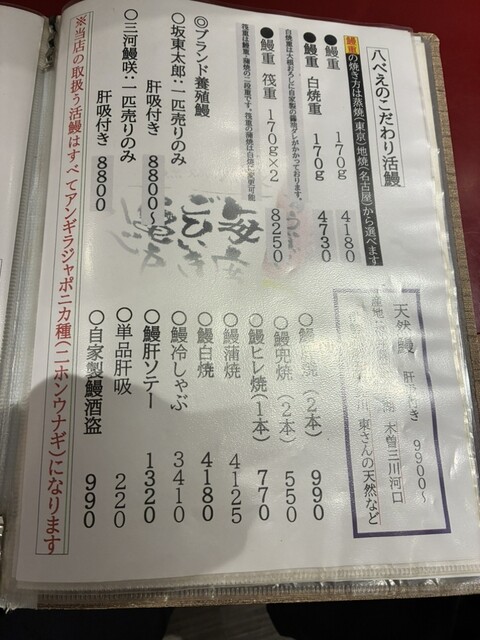 八べえのこだわり活鰻
鰻重の焼き方は蒸焼(東京)地焼(名古屋)から選べます
●鰻重 170g 4180
●鰻重 白焼重 170g 4730
白焼重は大根おろしに自家製の醤油ダレがかかっております。
●鰻重 筏重 170g×2 8250
筏重は鰻重・蒲焼の二段重です。筏重の蒲焼は白焼に変更可能
◎ブランド養殖鰻
○坂東太郎:一匹売りのみ
肝吸付き 8800〜
○三河鰻咲:一匹売りのみ
肝吸付き 8800
天然鰻 肝吸付き 9900〜
木曽三川河口
川、東さんの天然など
(2本) 990
○鰻兜焼 (2本) 550
○鰻ヒレ焼(1本) 770
○鰻蒲焼 4125
○鰻白焼 4180
○鰻冷しゃぶ 3410
○鰻肝ソテー 1320
○単品肝吸 220
○自家製鰻酒盗 990
※当店の取扱う活鰻はすべてアンギラジャポニカ種(ニホンウナギ)になります